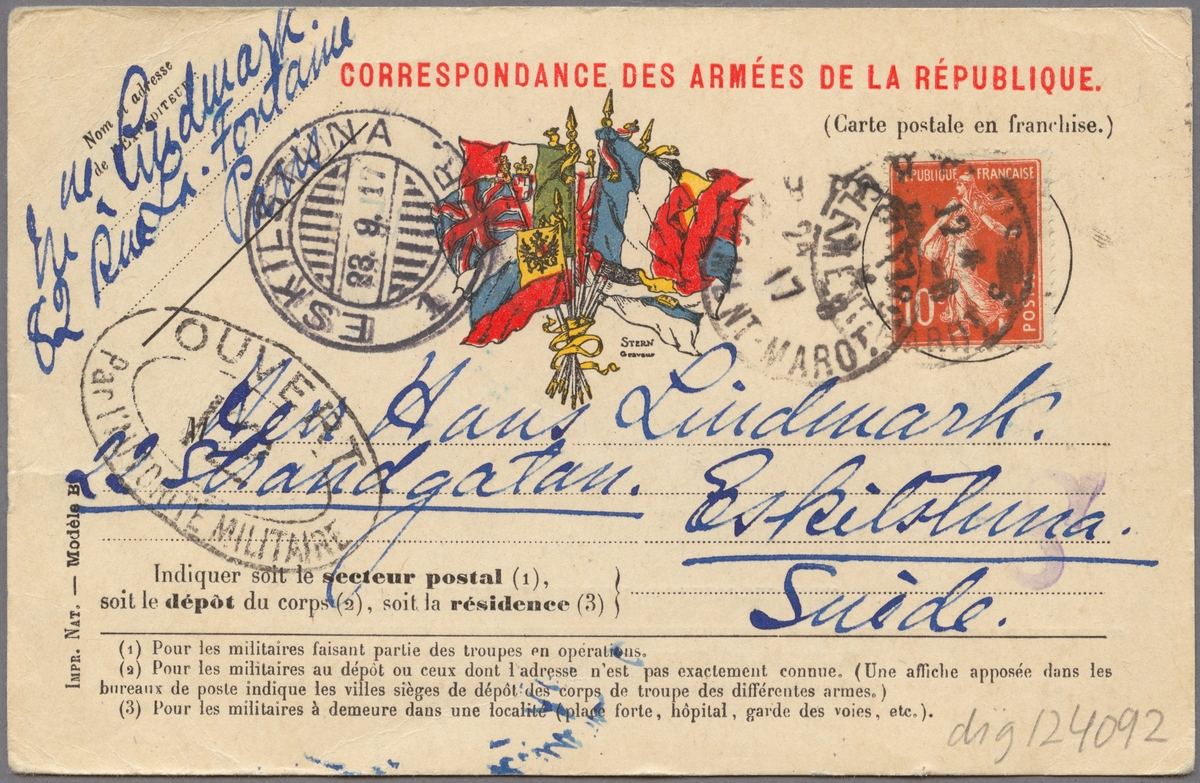 CORRESPONDANCE DES ARMÉES DE LA RÉPUBLIQUE.
(Carte postale en franchise.)
Nom et adresse
de l'EXPÉDITEUR
Lindmark.
82 Rue La. Fontaine
Paris
ESKILSTUNA
23. 9. 17
RÉPUBLIQUE FRANÇAISE
10
POSTES
17
STERN
Graveur
OUVERT
Par l'AUTORITÉ MILITAIRE
Herr Hans Lindmark.
22 Strandgatan.
Eskilstuna.
Suède.
Indiquer soit le secteur postal (1),
soit le dépôt du corps (2), soit la résidence (3)
(1) Pour les militaires faisant partie des troupes en opérations.
(2) Pour les militaires au dépôt ou ceux dont l'adresse n'est pas exactement connue. (Une affiche apposée dans les
bureaux de poste indique les villes sièges de dépôt des corps de troupe des différentes armes.)
(3) Pour les militaires à demeure dans une localité (place forte, hôpital, garde des voies, etc.).
IMPR. NAT. — Modèle B
dig 124092